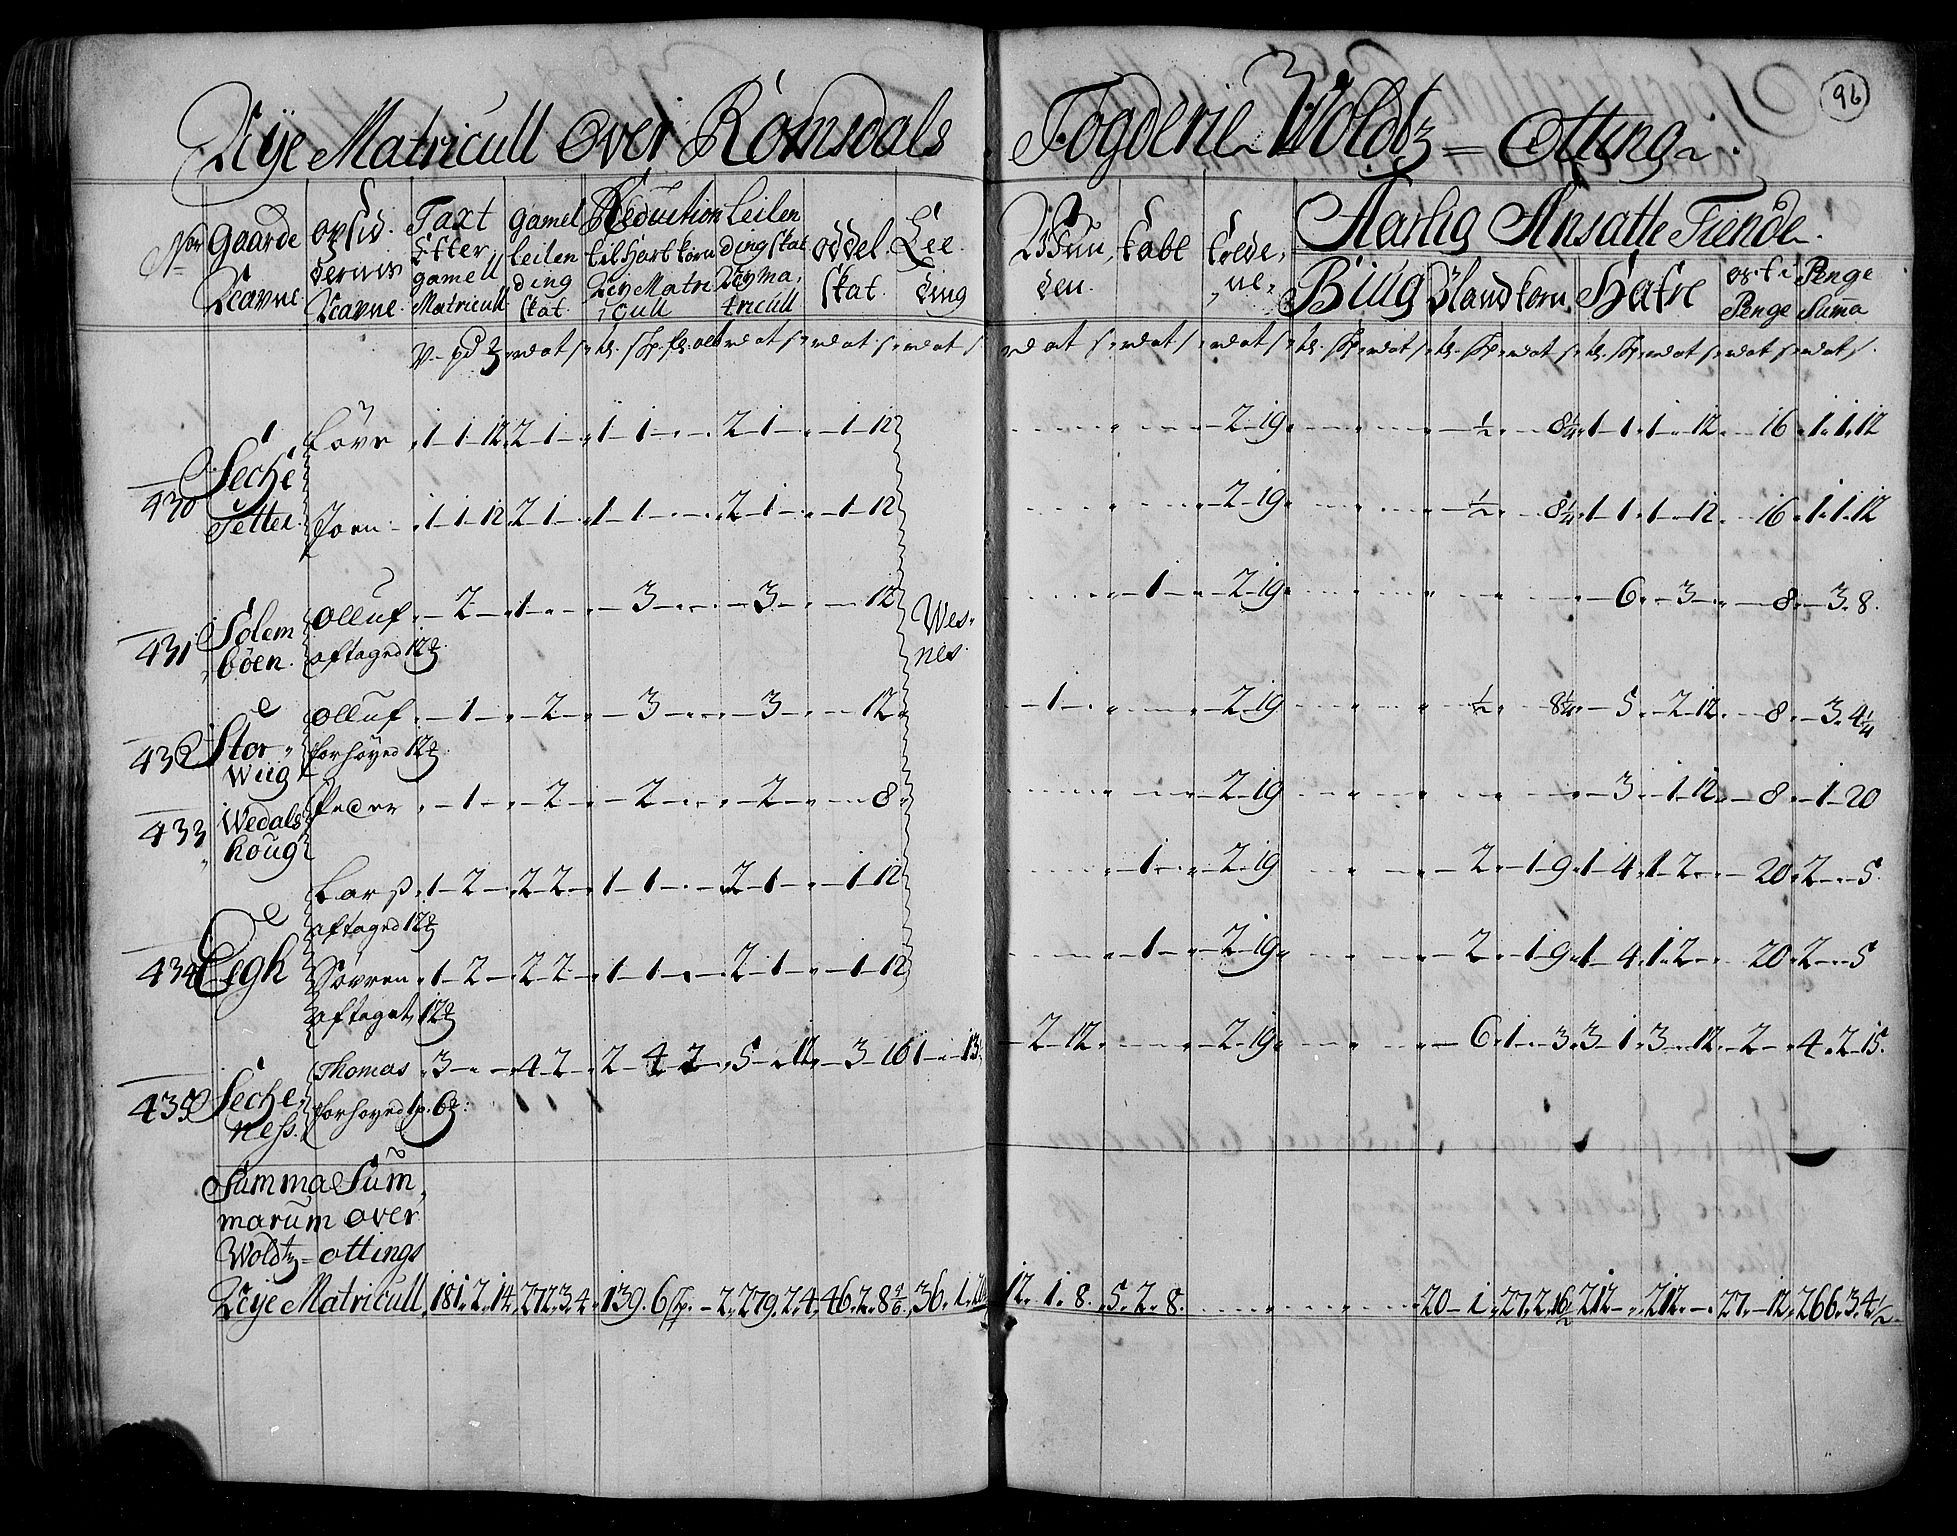 Nÿe Matricull Over Romsdals Fogderie Woldtz= Otting
96
Nor
Gaarde Navne
opsid dernis Navne
Taxt Efter gamell Matricull
gamel leilen ding skat
Reduction til Hart korn Ney Matricull
Leilen ding skat Ney Matricull
oddel skat
Lee ding
Wisun den
tabt
tolde ne
Aarlig Ansatte Tiende
Biug
Blandkorn
Hafre
oste Penge
Penge Suma
430 Seche Setter
Lövr 1-1-12 2-1- 1-1- 2-1- -1-12 2-19 ½ 8¼ 1-1 1-12 16 1.1.12
Joen 1-1-12 2-1- 1-1- 2-1- -1-12 2-19 ½ 8¼ 1-1 1-12 16 1.1.12
431 Solem böen
Olluf -2- 1- 3 3 12 Wes nes 1 2-19 6 3 8 3.8
aftaged 12
432 Stor Wiig
Olluf -1- 2 3 3 12 1 2-19 ½ 8¼ 5 2-12 8 3.4¼
forhöyed 12
433 Wedals houg
Peder -1- 2 2 2 8 2-19 3 1-12 8 1-20
434 Eegh
Larss 1-2- 2-2- 1-1- 2-1- -1-12 1 2-19 2 1-9 1-4 1-2 20 2-5
aftaged 12
Sövren 1-2- 2-2- 1-1- 2-1- -1-12 1 2-19 2 1-9 1-4 1-2 20 2-5
aftaget 12
435 Seche ness
Thomas 3- 4-2 2-4-2 5-12 3-16 1-13 2-12 2-19 6 1-3 3-1 3-12 2 4.2-15
forhöyed 1p. 6
Summa Sum
marum over
Woldtz= ottings
Neye Matricull 181.2.14 272.3.4 139.6 2 279.2.4 46.2.8 36.1. 12.1.8 5.2.8 20-1 27.2.16½ 212 212 27-12 266.3.4½